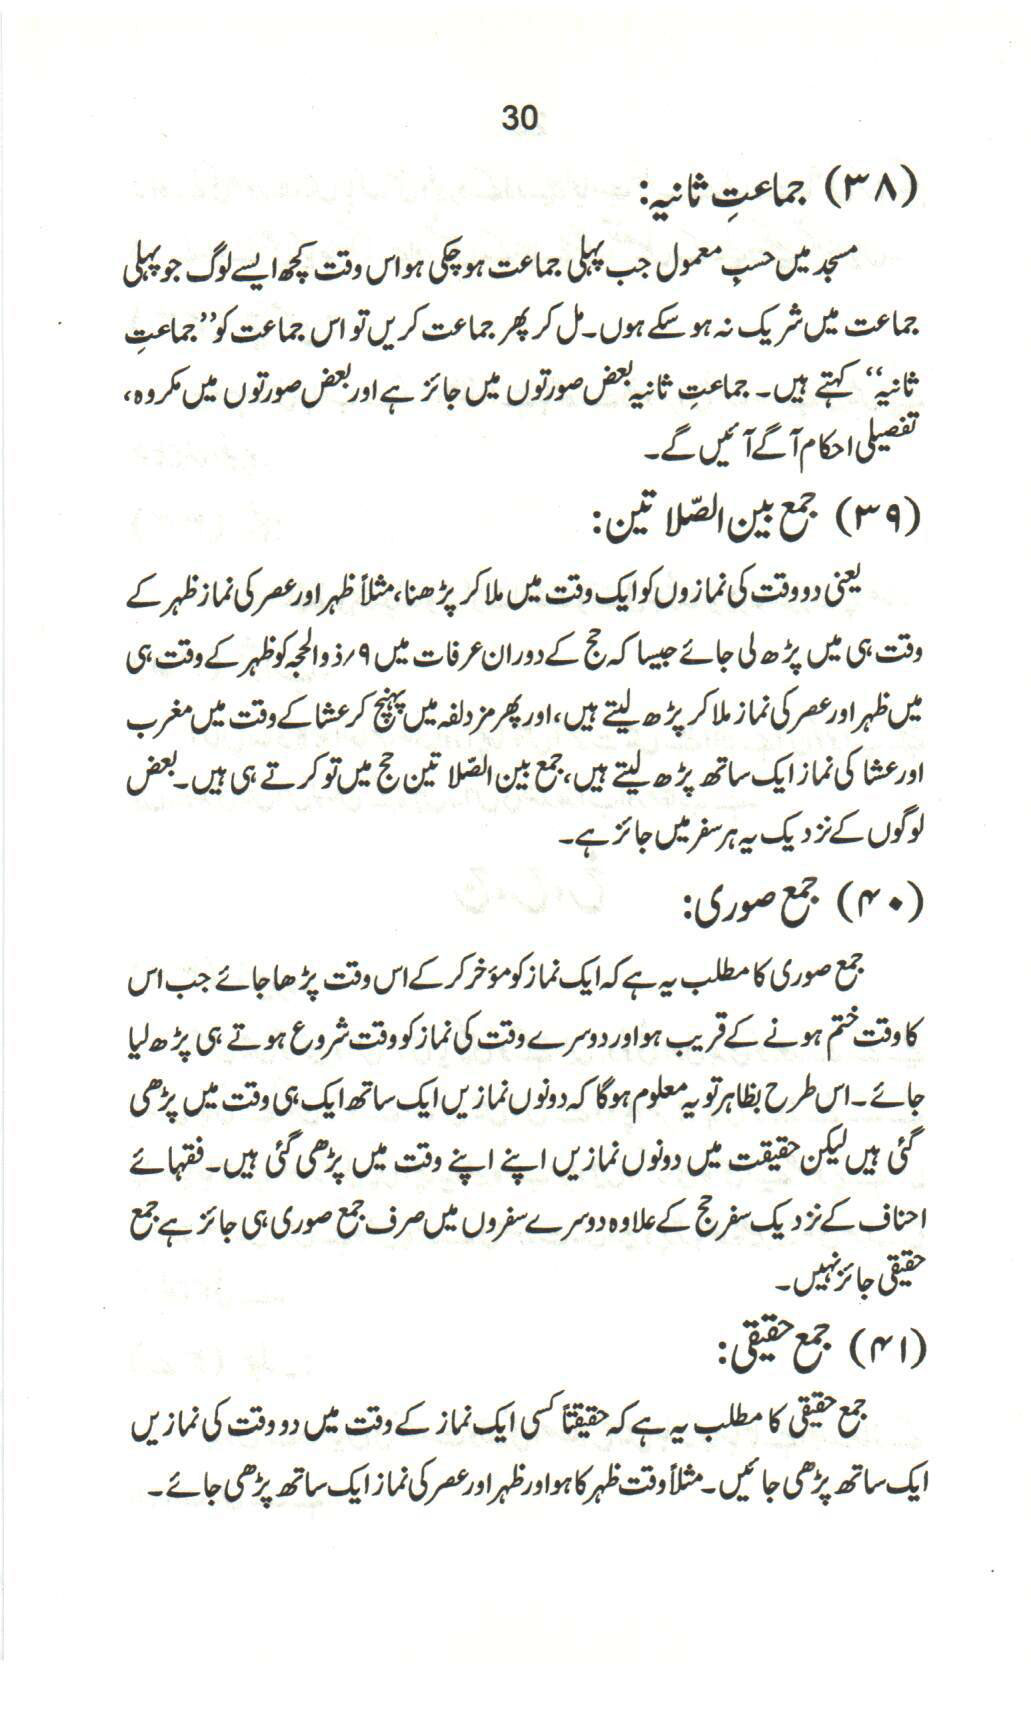 30
(۳۸) جماعتِ ثانیہ:
مسجد میں حسبِ معمول جب پہلی جماعت ہوچکی ہو اس وقت کچھ ایسے لوگ جو پہلی
جماعت میں شریک نہ ہوسکے ہوں۔ مل کر پھر جماعت کریں تو اس جماعت کو ’’جماعتِ
ثانیہ‘‘ کہتے ہیں۔ جماعتِ ثانیہ بعض صورتوں میں جائز ہے اور بعض صورتوں میں مکروہ،
تفصیلی احکام آگے آئیں گے۔
(۳۹) جمع بین الصّلاتین:
یعنی دو وقت کی نمازوں کو ایک وقت میں ملا کر پڑھنا، مثلاً ظہر اور عصر کی نماز ظہر کے
وقت ہی میں پڑھ لی جائے جیسا کہ حج کے دوران عرفات میں ۹؍ذوالحجہ کو ظہر کے وقت ہی
میں ظہر اور عصر کی نماز ملا کر پڑھ لیتے ہیں، اور پھر مزدلفہ میں پہنچ کر عشا کے وقت میں مغرب
اور عشا کی نماز ایک ساتھ پڑھ لیتے ہیں، جمع بین الصّلاتین حج میں تو کرتے ہی ہیں۔ بعض
لوگوں کے نزدیک یہ ہر سفر میں جائز ہے۔
(۴۰) جمع صوری:
جمع صوری کا مطلب یہ ہے کہ ایک نماز کو مؤخر کرکے اس وقت پڑھا جائے جب اس
کا وقت ختم ہونے کے قریب ہو اور دوسرے وقت کی نماز کو وقت شروع ہوتے ہی پڑھ لیا
جائے۔ اس طرح بظاہر تو یہ معلوم ہوگا کہ دونوں نمازیں ایک ساتھ ایک ہی وقت میں پڑھی
گئی ہیں لیکن حقیقت میں دونوں نمازیں اپنے اپنے وقت میں پڑھی گئی ہیں۔ فقہائے
احناف کے نزدیک سفر حج کے علاوہ دوسرے سفروں میں صرف جمع صوری ہی جائز ہے جمع
حقیقی جائز نہیں۔
(۴۱) جمع حقیقی:
جمع حقیقی کا مطلب یہ ہے کہ حقیقتاً کسی ایک نماز کے وقت میں دو وقت کی نمازیں
ایک ساتھ پڑھی جائیں۔ مثلاً وقت ظہر کا ہو اور ظہر اور عصر کی نماز ایک ساتھ پڑھی جائے۔